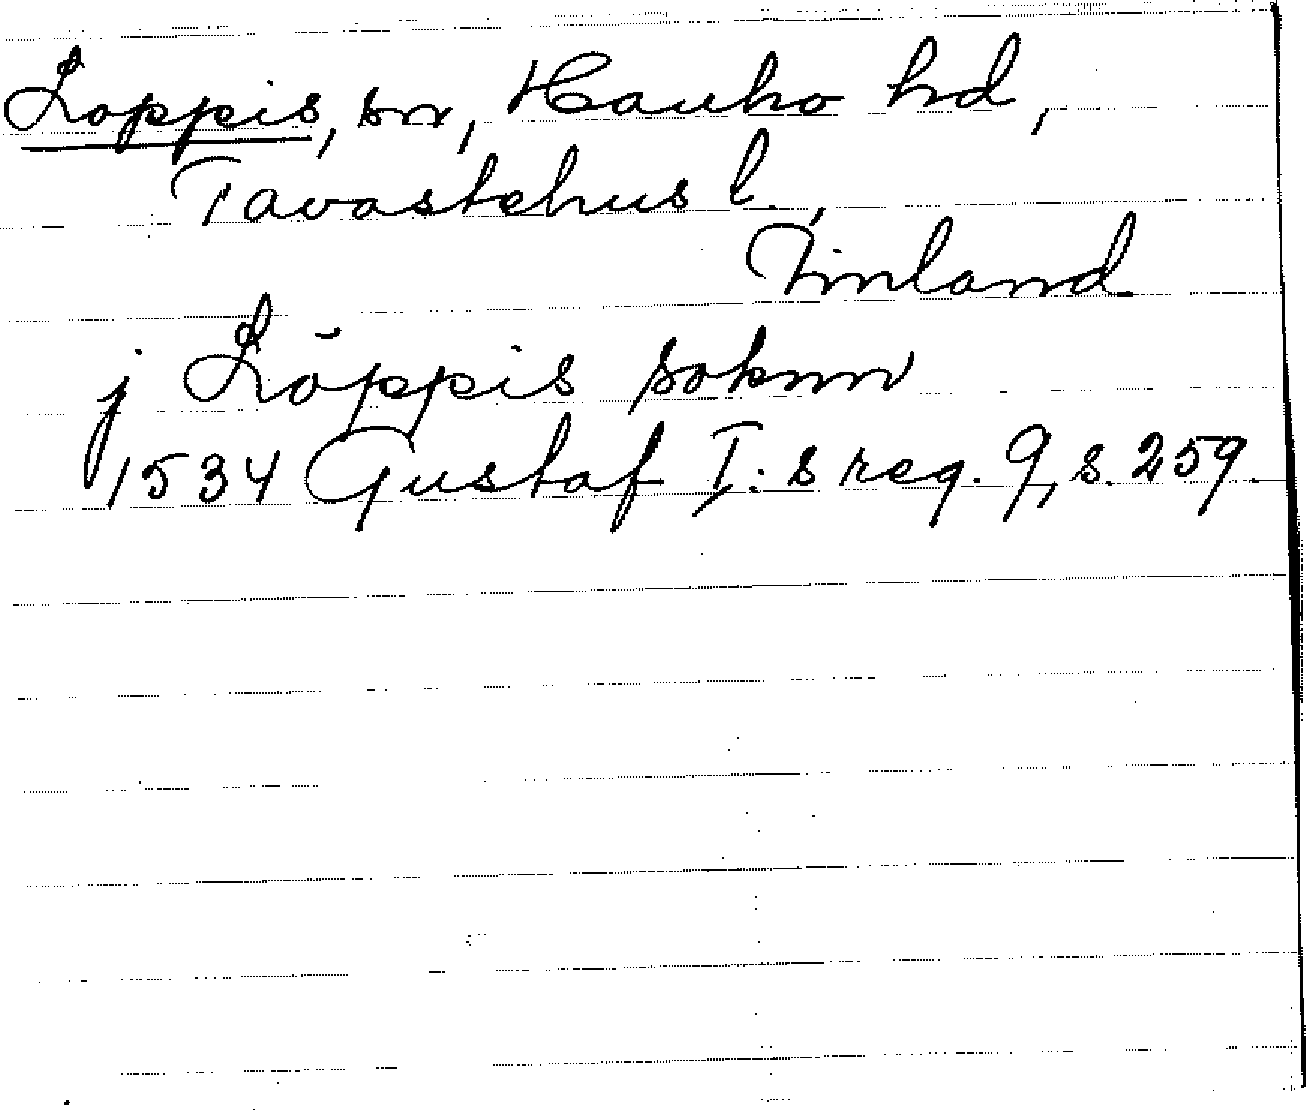 Loppis, sn, Hauho hd,
Tavastehus l.,
Finland
j Löppis soknn
1534 Gustaf I:s reg. 9, s. 259.